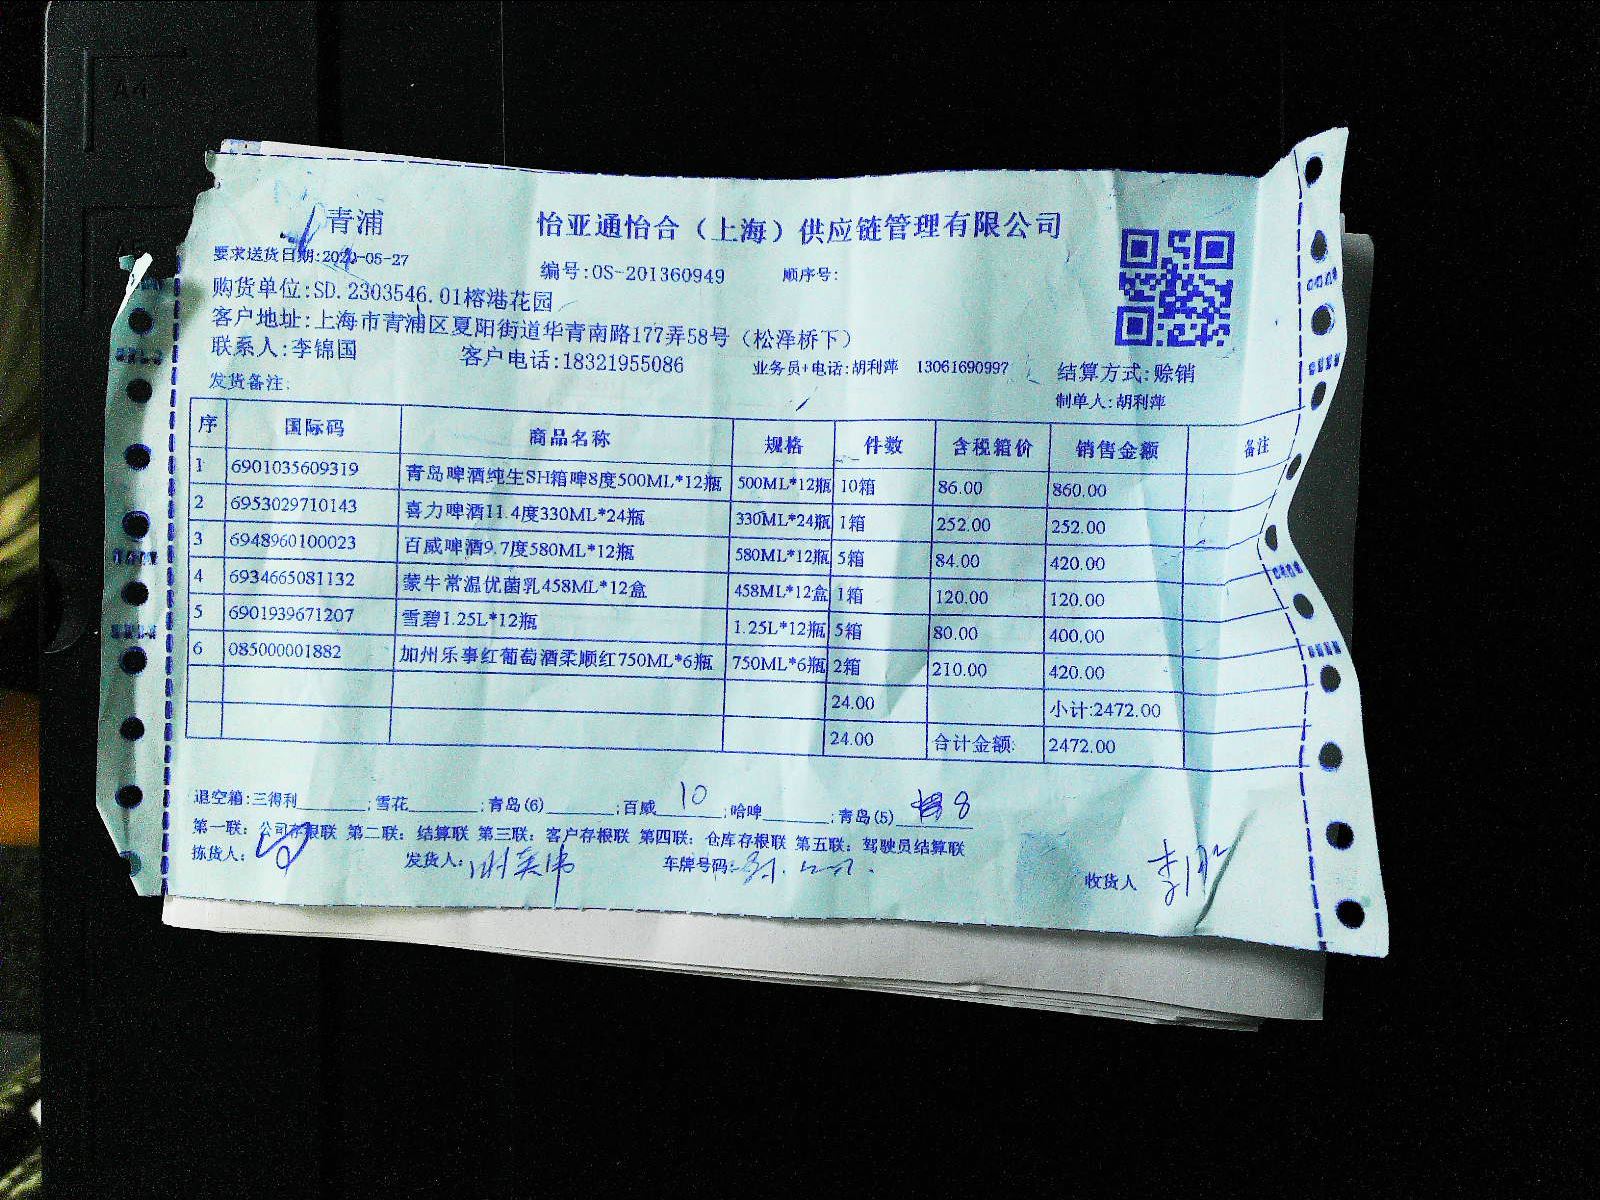 青浦
怡亚通怡合（上海）供应链管理有限公司
要求送货日期:2020-05-27
编号:OS-201360949 顺序号:
购货单位:SD.2303546.01榕港花园
客户地址:上海市青浦区夏阳街道华青南路177弄58号（松泽桥下）
联系人:李锦国 客户电话:18321955086 业务员+电话:胡利萍 13061690997 结算方式:赊销
发货备注: 制单人:胡利萍
序 国际码 商品名称 规格 件数 含税箱价 销售金额 备注
1 6901035609319 青岛啤酒纯生SH箱啤8度500ML*12瓶 500ML*12瓶 10箱 86.00 860.00
2 6953029710143 喜力啤酒11.4度330ML*24瓶 330ML*24瓶 1箱 252.00 252.00
3 6948960100023 百威啤酒9.7度580ML*12瓶 580ML*12瓶 5箱 84.00 420.00
4 6934665081132 蒙牛常温优菌乳458ML*12盒 458ML*12盒 1箱 120.00 120.00
5 6901939671207 雪碧1.25L*12瓶 1.25L*12瓶 5箱 80.00 400.00
6 085000001882 加州乐事红葡萄酒柔顺红750ML*6瓶 750ML*6瓶 2箱 210.00 420.00
24.00 小计:2472.00
24.00 合计金额: 2472.00
退空箱:三得利________;雪花________;青岛(6)________;百威 10 ;哈啤________;青岛(5) 8
第一联：公司存根联 第二联：结算联 第三联：客户存根联 第四联：仓库存根联 第五联：驾驶员结算联
拣货人： 发货人: 车牌号码: 收货人